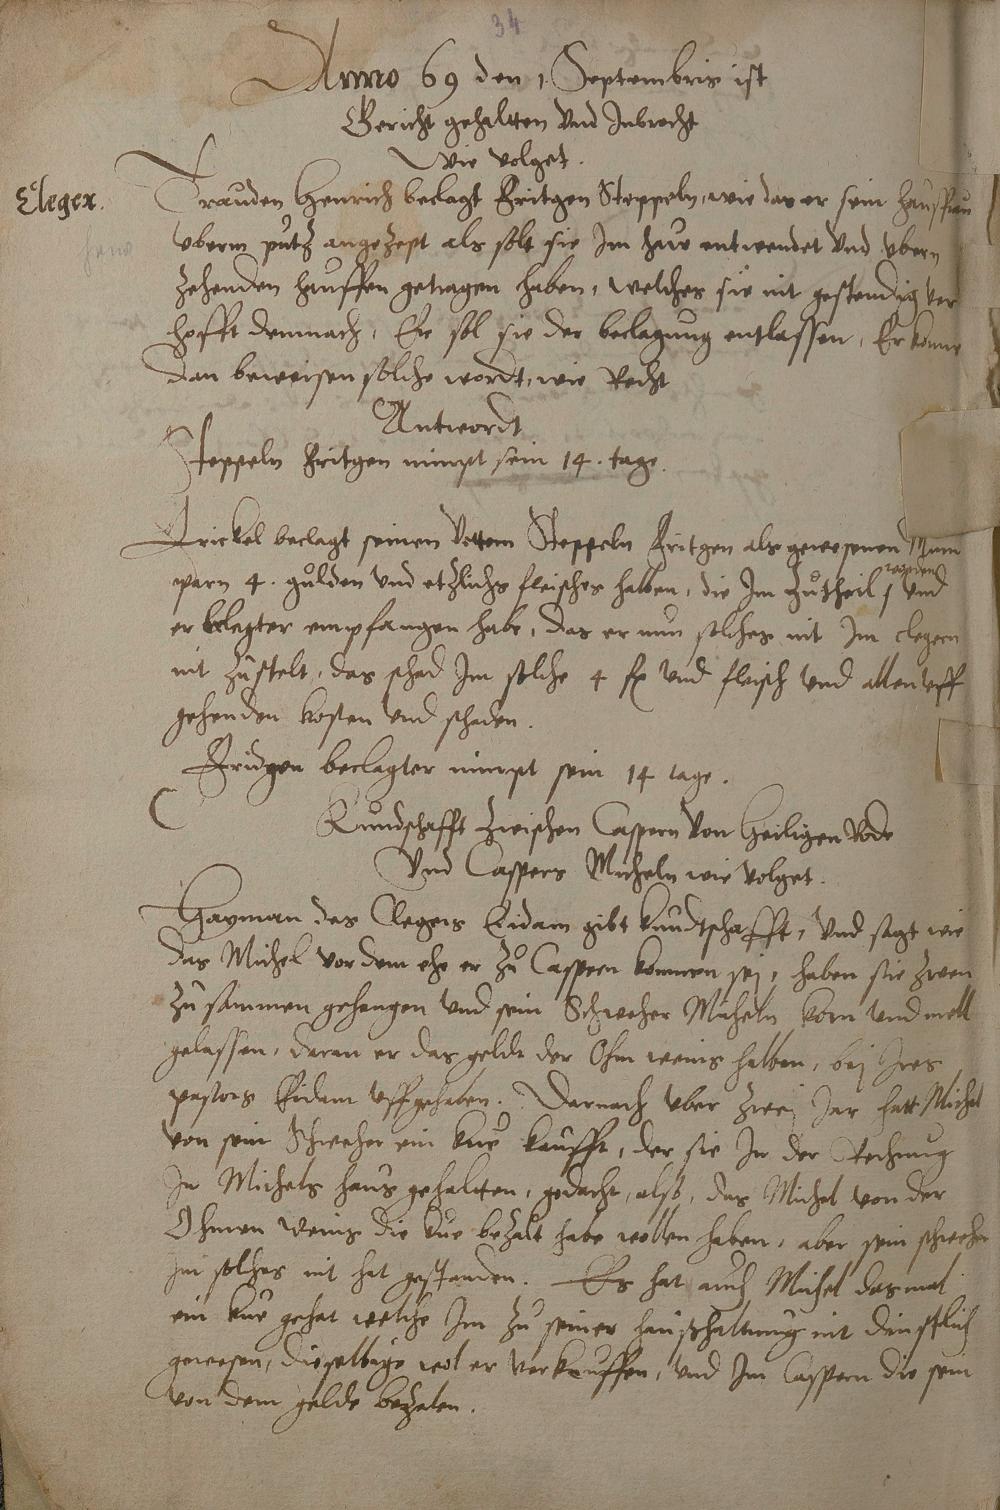 34
Anno 69 den 1. Septembris ist
Gericht gehaltten vnd Inbracht
wie volget.
Cleger.
Trauden Henrich beclagt Fritgen Steppeln, wie das er sein hausfrau
vberm putz angezept als solt sie Im haw entwendet vnd vbern
zehenden hauffen getragen haben, welches sie nit gestendig ver
hofft demnach, Ehr sol sie der beclagung entlassen, Er konne
dan beweisen solche wordt, wie Recht
Antwordt
Steppeln Fritgen nimpt sein 14. tage.
Frickel beclagt seinen Vettern Steppeln Fritgen als gewesenen Mum
parn 4. gulden vnd etzlichs fleisches halben, die Im zutheil worden vnd
er beclagter empfangen habe, das er nun solches nit Im clegern
nit zustelt, das schad Im solche 4 fl vnd fleisch vnd allen vff
gehenden kosten vnd schaden.
Fridgen beclagter nimpt sein 14 tage.
Kundschafft zwischen Caspern von Heiligen Rode
vnd Caspers Micheln wie volget.
Hayman des Clegers Eidam gibt kundtschafft, vnd sagt wie
das Michel vor dem ehe er zu Caspern kommen sej, haben sie zwen
zusammen gehangen vnd sein Schweher Micheln korn vnd mell
gelassen, daran er das geldt der Ohm weins halben, bej Ires
pastors Eidam vffgehaben. Darnach vber zwej Jar hatt Michel
von sein Schweher ein kue kaufft, der sie In der Rechnung
In Michels haus gehaltten, gedacht, alß, das Michel von der
Ohmen weins die kue bezalt habe wollen haben, aber sein schweher
Im solches nit hat gestanden. Es hat auch Michel das mal
ein kue gehat welche Im zu seiner haußhaltung nit dinstlich
gewesen, dieselbige wol er verkauffen, vnd Im Caspern die sein
von dem gelde bezalen.